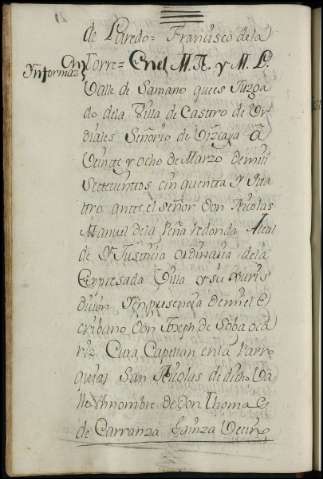 de Laredo = Francisco de la
Torre = En el M. N. y M. L.
Informaz.on
Valle de Samano que es Juzga
do de la Villa de Castro de Ur
diales Señorio de Vizcaya â
Veinte y ocho de Marzo de mil
Setecientos cinquenta y qua
tro ante el señor Don Nicolas
Manuel de la Peña redonda Alcal
de y Justicia ordinaria de la
Expresada Villa y su Juris
dicion Y en presencia de mi el Es
cribano Don Joseph de
Cura Capellan en la Parro
quia San Nicolas de dicho Va
lle En nombre de Don Thomas
de Carranza Vecino